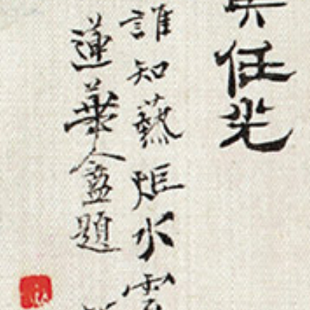 任光
誰知爇炬水雲
蓮華盦題